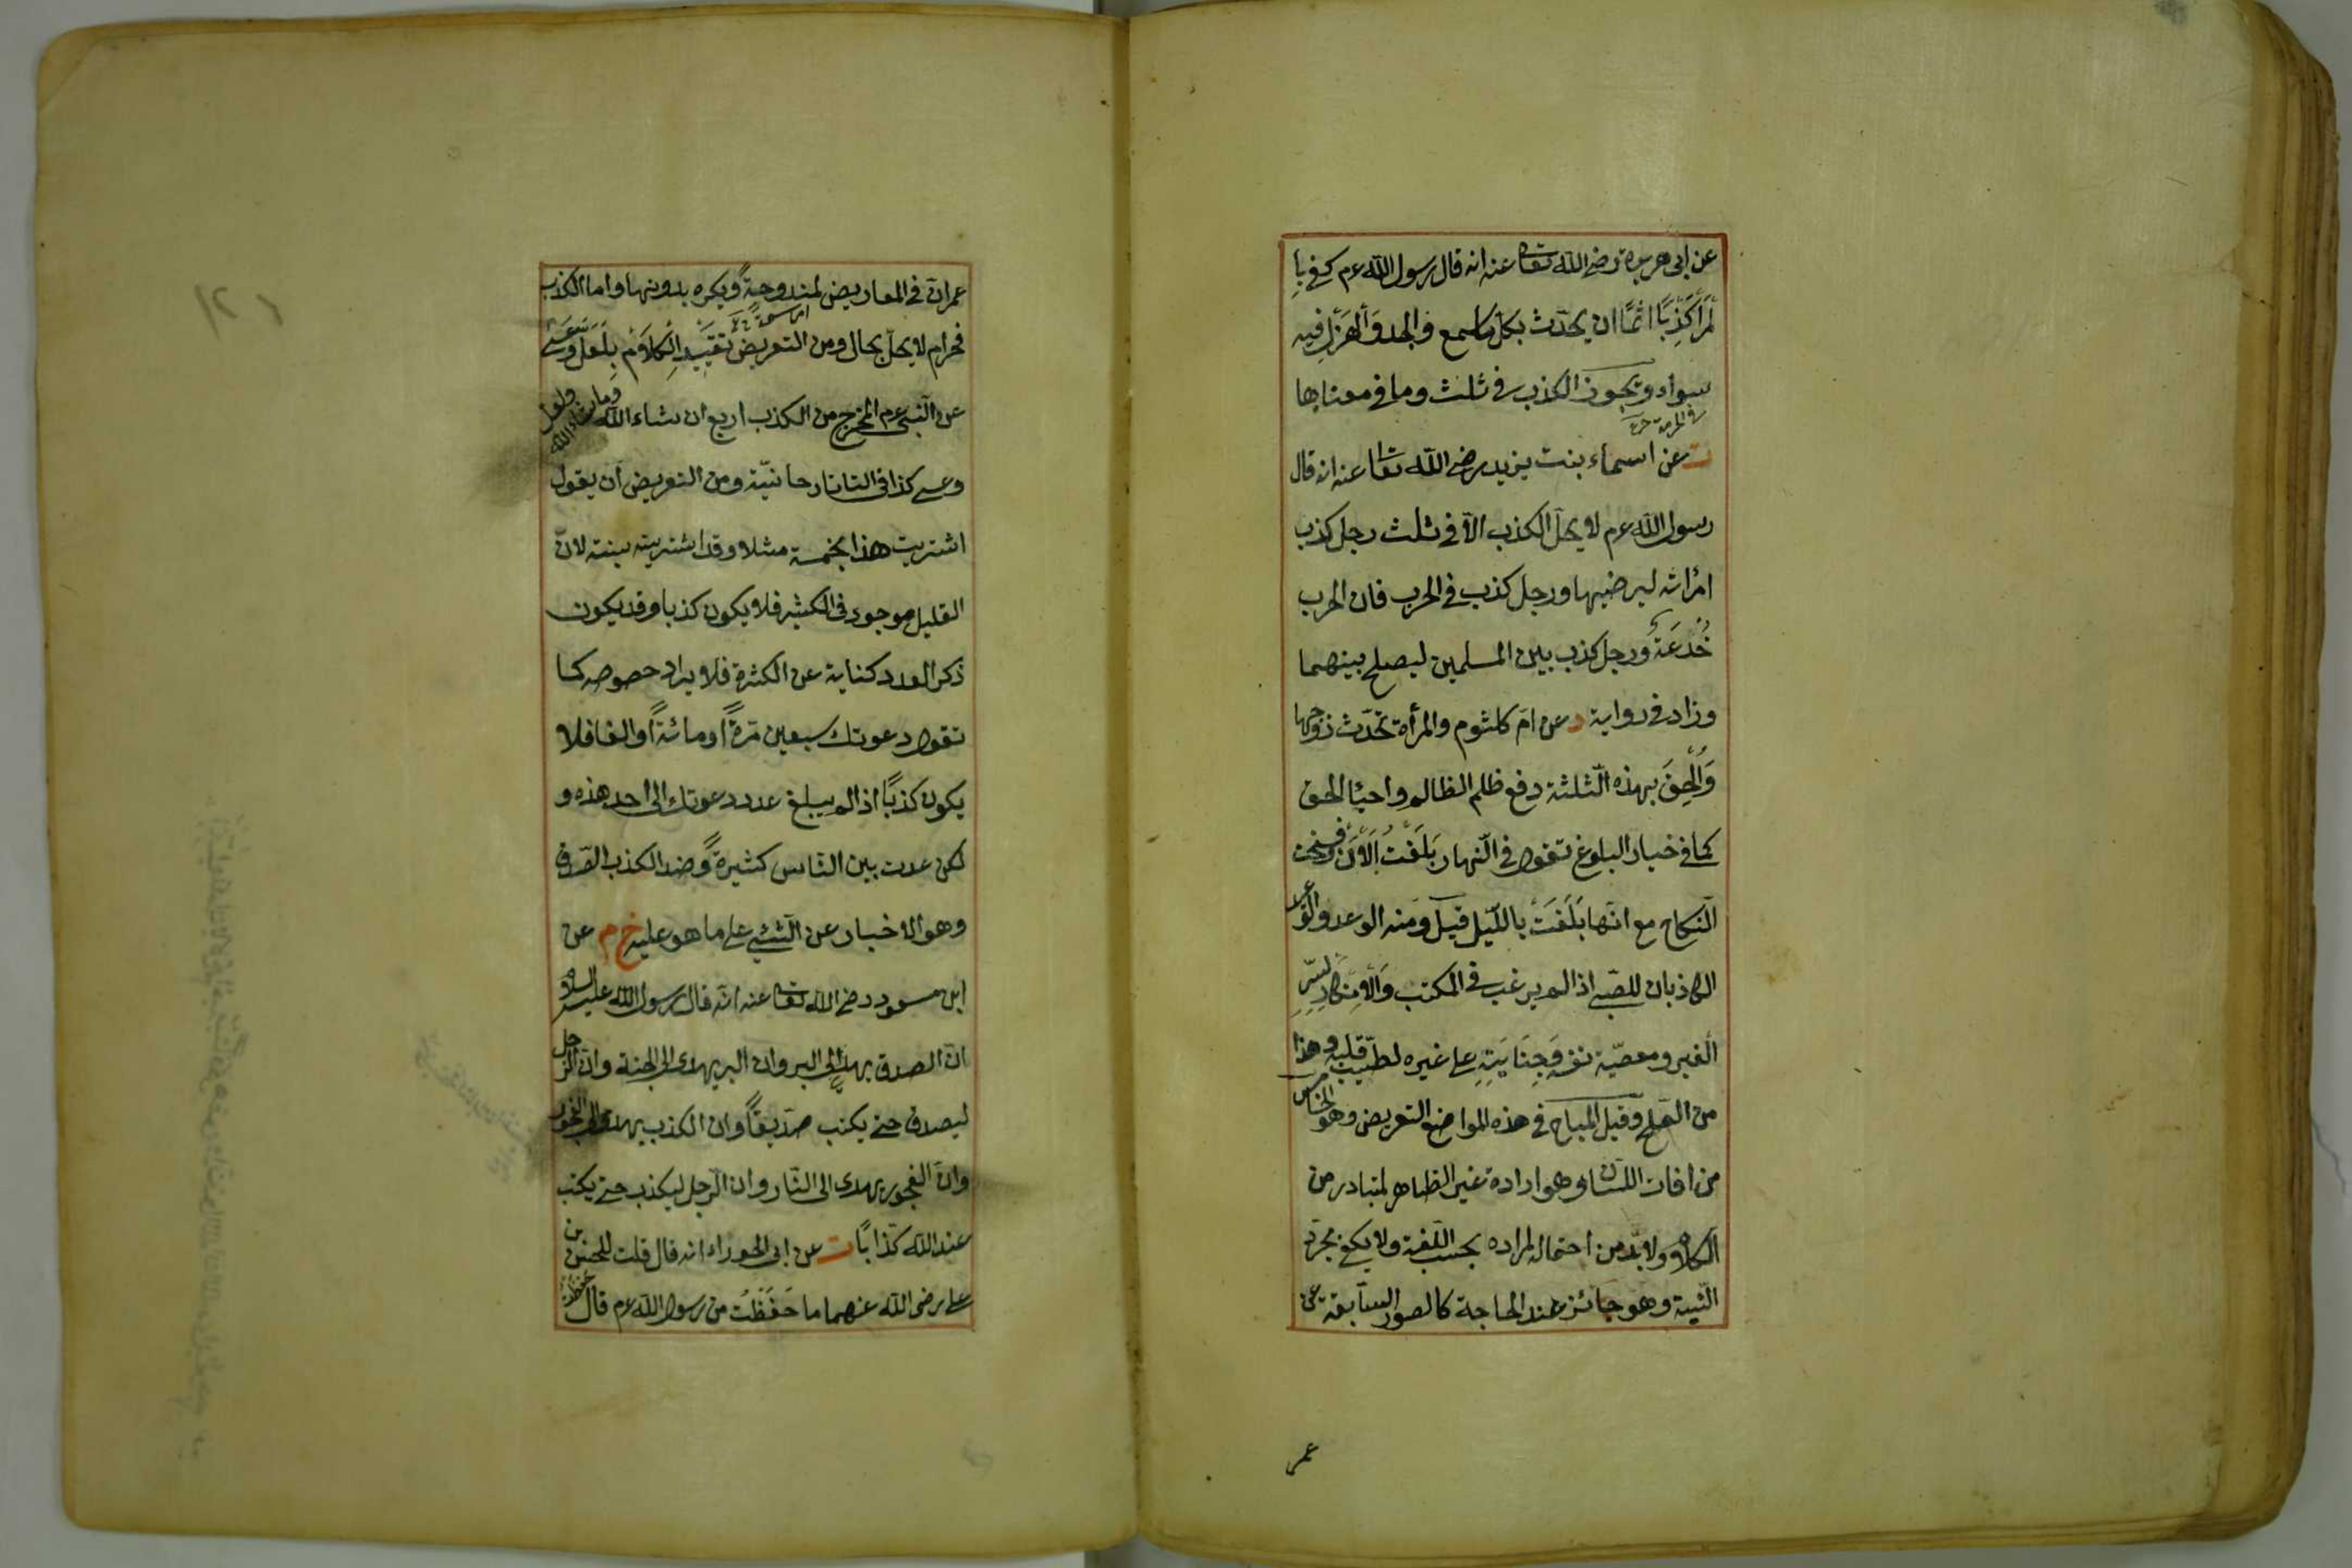 عن ابى هريرة رضى الله تعا عنه انه قال رسول الله عم كفى با
لمرأ كذبا اثما ان يحدّث بكل ما سمع والجد والهزل فيه
سواء ويجوز الكذب فى ثلث وما فى معناها
ت عن اسماء بنت يزيد رضى الله تعا عنه انه قال
رسول الله عم لا يحلّ الكذب الّا فى ثلث رجل كذب
امرأته ليرضيها ورجل كذب فى الحرب فان الحرب
خُدعَةٌ ورجل كذب بين المسلمين ليصلح بينهما
وزاد فى رواية د عن امّ كلثوم والمرأة تحدّث زوجها
وَاُلْحِقَ بهذه الثلثة دفع ظلم الظالم واحياء الحق
كما فى خيار البلوغ تقول فى النّهار بَلَغْتُ اَلْاٰنَ وفسخت
النّكاح مع انّها بَلَغَتْ باللّيل قيل ومنه الوعد والوعيد
الكاذبان للصّبى اذا لم يرغب فى المكتب وَالْاِنْكَار لِسِرِّ
الغير ومعصية نفسه وَجِنَايَتِهِ على غيره لطيّب قلبه وهذا
من الصّلح وقيل المباح فى هذه المواضع التعريض وهو الخامس
من افات اللسان وهو ارادة غير الظاهر المتبادر من
الكلام ولا بدّ من احتمال لمراده بحسب اللّغة ولا يكفى مجرّد
النّية وهو جائز عند الحاجة كالصور السّابقة عن
عمر
عمر انّ فى المعاريض لمندوحةً ويكره بدونها واما الكذب
اى سعة
فحرام لا يحلّ بحال ومن التعريض تقييد الكلام بلعلّ وعسى
عن النّبى عم المخرج من الكذب اربع ان شاء الله وما شاء الله ولعل
وعسى كذا فى التاتارخانيّة ومن التعريض ان يقول
اشتريت هذا بخمسة مثلا وقد اشتريته بستة لانّ
القليل موجود فى الكثير فلا يكون كذبا وقد يكون
ذكر العدد كناية عن الكثرة فلا يراد خصوصه كما
تقول دعوتك سبعين مرّةً او مائةً او الفا فلا
يكون كذبًا اذا لم يبلغ عدد دعوتك الى احد هذه و
لكن عدت بين الناس كثيرةً وضد الكذب الصّدق
وهو الاخبار عن الشئ على ما هو عليه خ م عن
ابن مسعود رضى الله تعا عنه انّه قال رسول الله عليه السلام
انّ الصدق يهدى الى البر وان البر يهدى الى الجنة وانّ الرّجل
ليصدق حتى يكتب صدّيقًا وان الكذب يهدى الى الفجور
وانّ الفجور يهدى الى النّار وان الرّجل ليكذب حتى يكتب
عند الله كذّابًا ت عن ابى الحوراء انه قال قلت للحسن بن
على رضى الله عنهما ما حَفَظْتَ من رسول الله عم قال حفظت